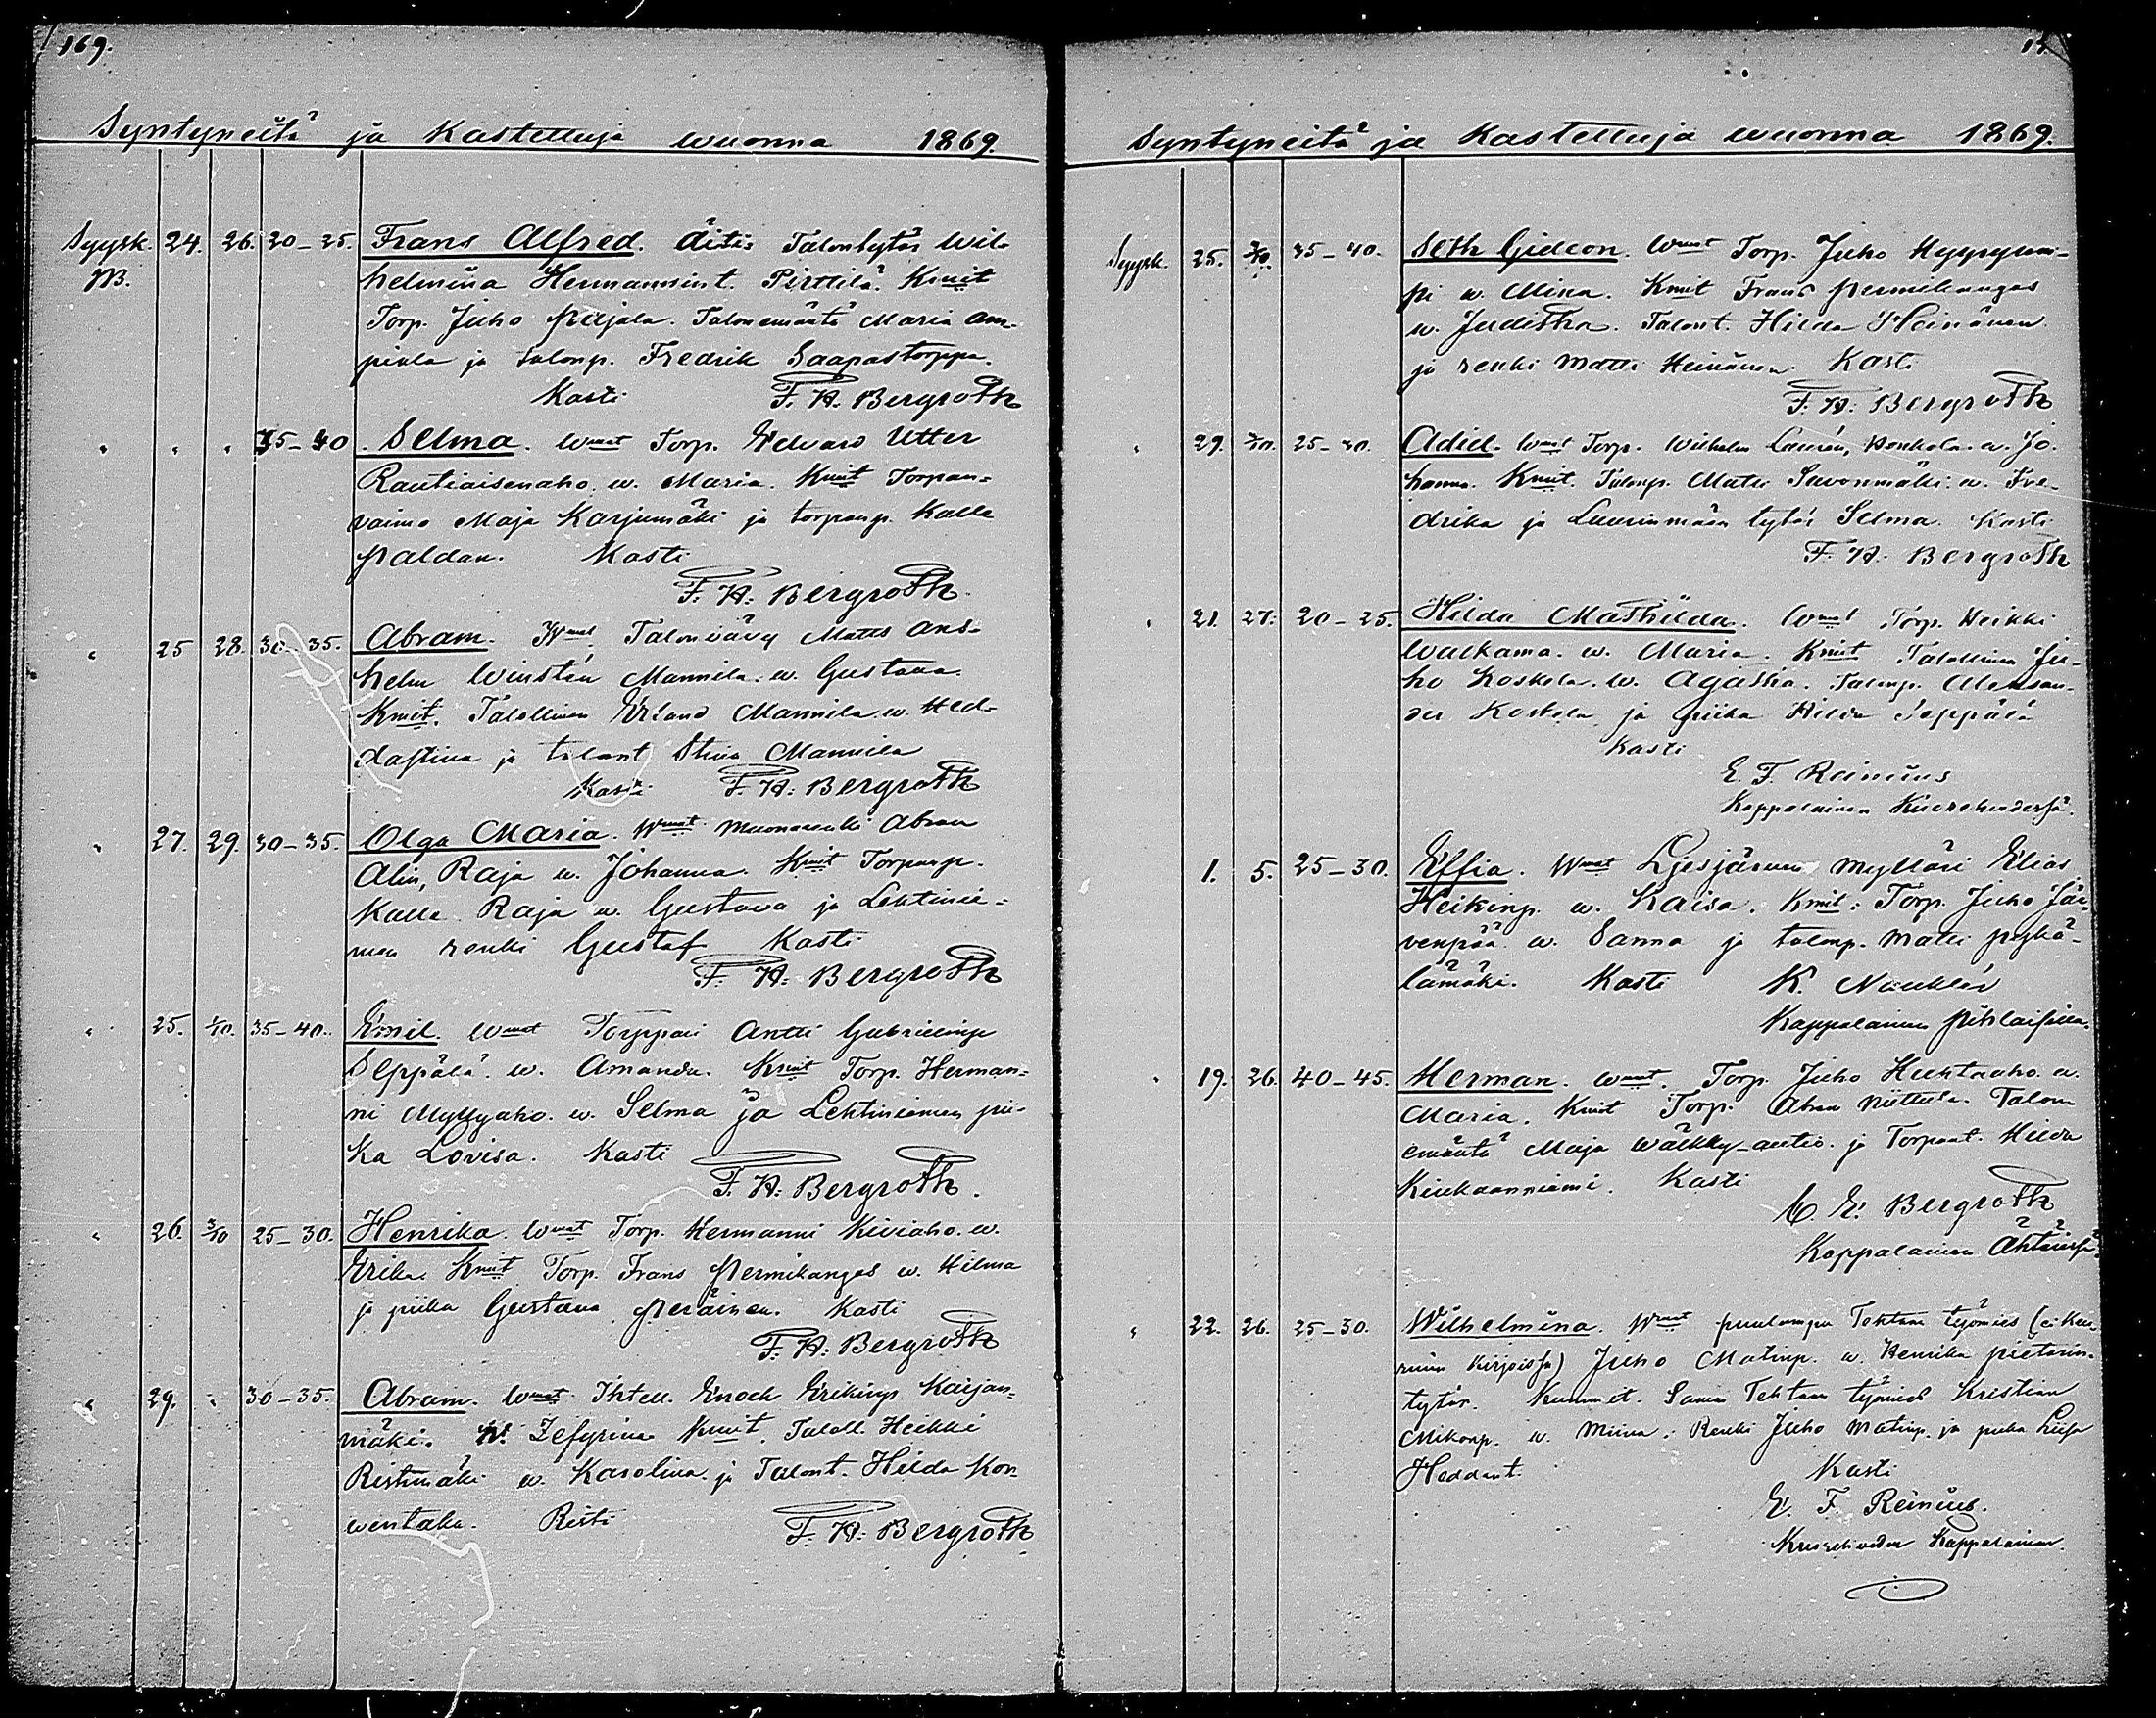 169.
Syntyneitä ja Kastettuja wuonna 1869.
Syysk. 24. 26. 20-25. Frans Alfred. Äiti: Talontytär Wil-
helmiina Hermannint. Pirttilä. Kmit
Torp. Juho Pajala. Talonemäntä Maria Am-
piala ja talonp. Fredrik Saapastorppa.
Kasti F. H. Bergroth
" " " 35-40. Selma. Wmat Torp. Edvard Utter
Rautiaisenaho. w. Maria. Kmit Torpan-
vaimo Maja Karjumäki ja torpanp. Kalle
Paldan. Kasti
F. H. Bergroth.
" 25 28. 30-35. Abram. Wmat. Talonvävy Matts Ans-
helm Winstén Mannila. w. Gustava.
Kmit. Talollinen Erland Mannila. w. Hed-
dastina ja talont Stina Mannila
Kasti F. H. Bergroth
" 27. 29. 30-35. Olga Maria. Wmat. muonarenki Abram
Alin, Raja w. Johanna. Kmit Torpanp.
Kalle Raja w. Gustava ja Lehtinie-
men renki Gustaf Kasti
F. H. Bergroth
" 25. 1/10. 35-40. Emil. Wmat Torppari Antti Gabrielinp
Seppälä. w. Amanda. Kmit Torp. Herman-
ni Myllyaho. w. Selma ja Lehtiniemen pii-
ka Lovisa. Kasti
F. H. Bergroth.
" 26. 3/10 25-30. Henrika. Wmat Torp. Hermanni Kiviaho. w.
Erika Kmit Torp. Frans Permikangas w. Hilma
ja piika Gustava Peräinen. Kasti
F. H. Bergroth
" 29. " 30-35. Abram. Wmat Ihtell. Enoch Erikinp Kaijan-
mäki. w. Zefyrina Kmit. Taloll. Heikki
Ristimäki w. Karolina. ja Talont. Hilda Kon-
wentaka. Risti F. H. Bergroth
Syntyneitä ja Kastettuja wuonna 1869.
Syysk. 25. 3/10. 35-40. Seth Gideon. Wmat Torp. Juho Hyypyrin-
pi w. Mina. Kmit Frans Permikangas
w. Juditha. Talont. Hilda Heinänen
ja renki Matti Heinänen. Kasti
F. H. Bergroth
" 29. 3/10. 25-30. Adiel. Wmat Torp. Wilhelm Laurén, Honkola. w. Jo-
hanna. Kmit. Talonp. Matti Savonmäki. w. Fre-
drika ja Laurinmäen tytär Selma. Kasti
F. H. Bergroth
" 21. 27. 20-25. Hilda Mathilda. Wmat Torp. Heikki
Walkama. w. Maria. Kmit Talollinen Ju-
ho Koskela. w. Agatha. Talonp. Aleksan-
der Koskela, ja piika Hilda Seppälä
Kasti
E. F. Reinius
Kappalainen Kuorehvedessä.
1. 5. 25-30. Effia. Wmat Ljesjärven Mylläri Elias
Heikinp. w. Kaisa. Kmit: Torp. Juho Jär-
venpää. w. Sanna ja talonp. Matti Pyhä-
lämäki. Kasti K. Nauklér
Kappalainen Pihlaissa.
" 19. 26. 40-45. Herman. Wmat. Torp. Juho Huhtaaho. w.
Maria. Kmit Torp. Abra Niittula. Talon
emäntä Maja Wälkky-autio. ja Torpant. Hilda
Kiukaanniemi. Kasti
C. E. Bergroth
Kappalainen Ähtärissä
" 22. 26. 25-30. Wilhelmina. Wmat puulampu Tehtaan työmies (ei Keu-
ruun kirjoissa) Juho Matinp. w. Henrika Pietarin-
tytär. Kummit. Saman Tehtaan työmies Kristian
Mikonp. w. Miina: Renki Juho Matinp. ja piika Liisa
Heddant. Kasti
E. F. Reinius.
Kuorehveden Kappalainen.